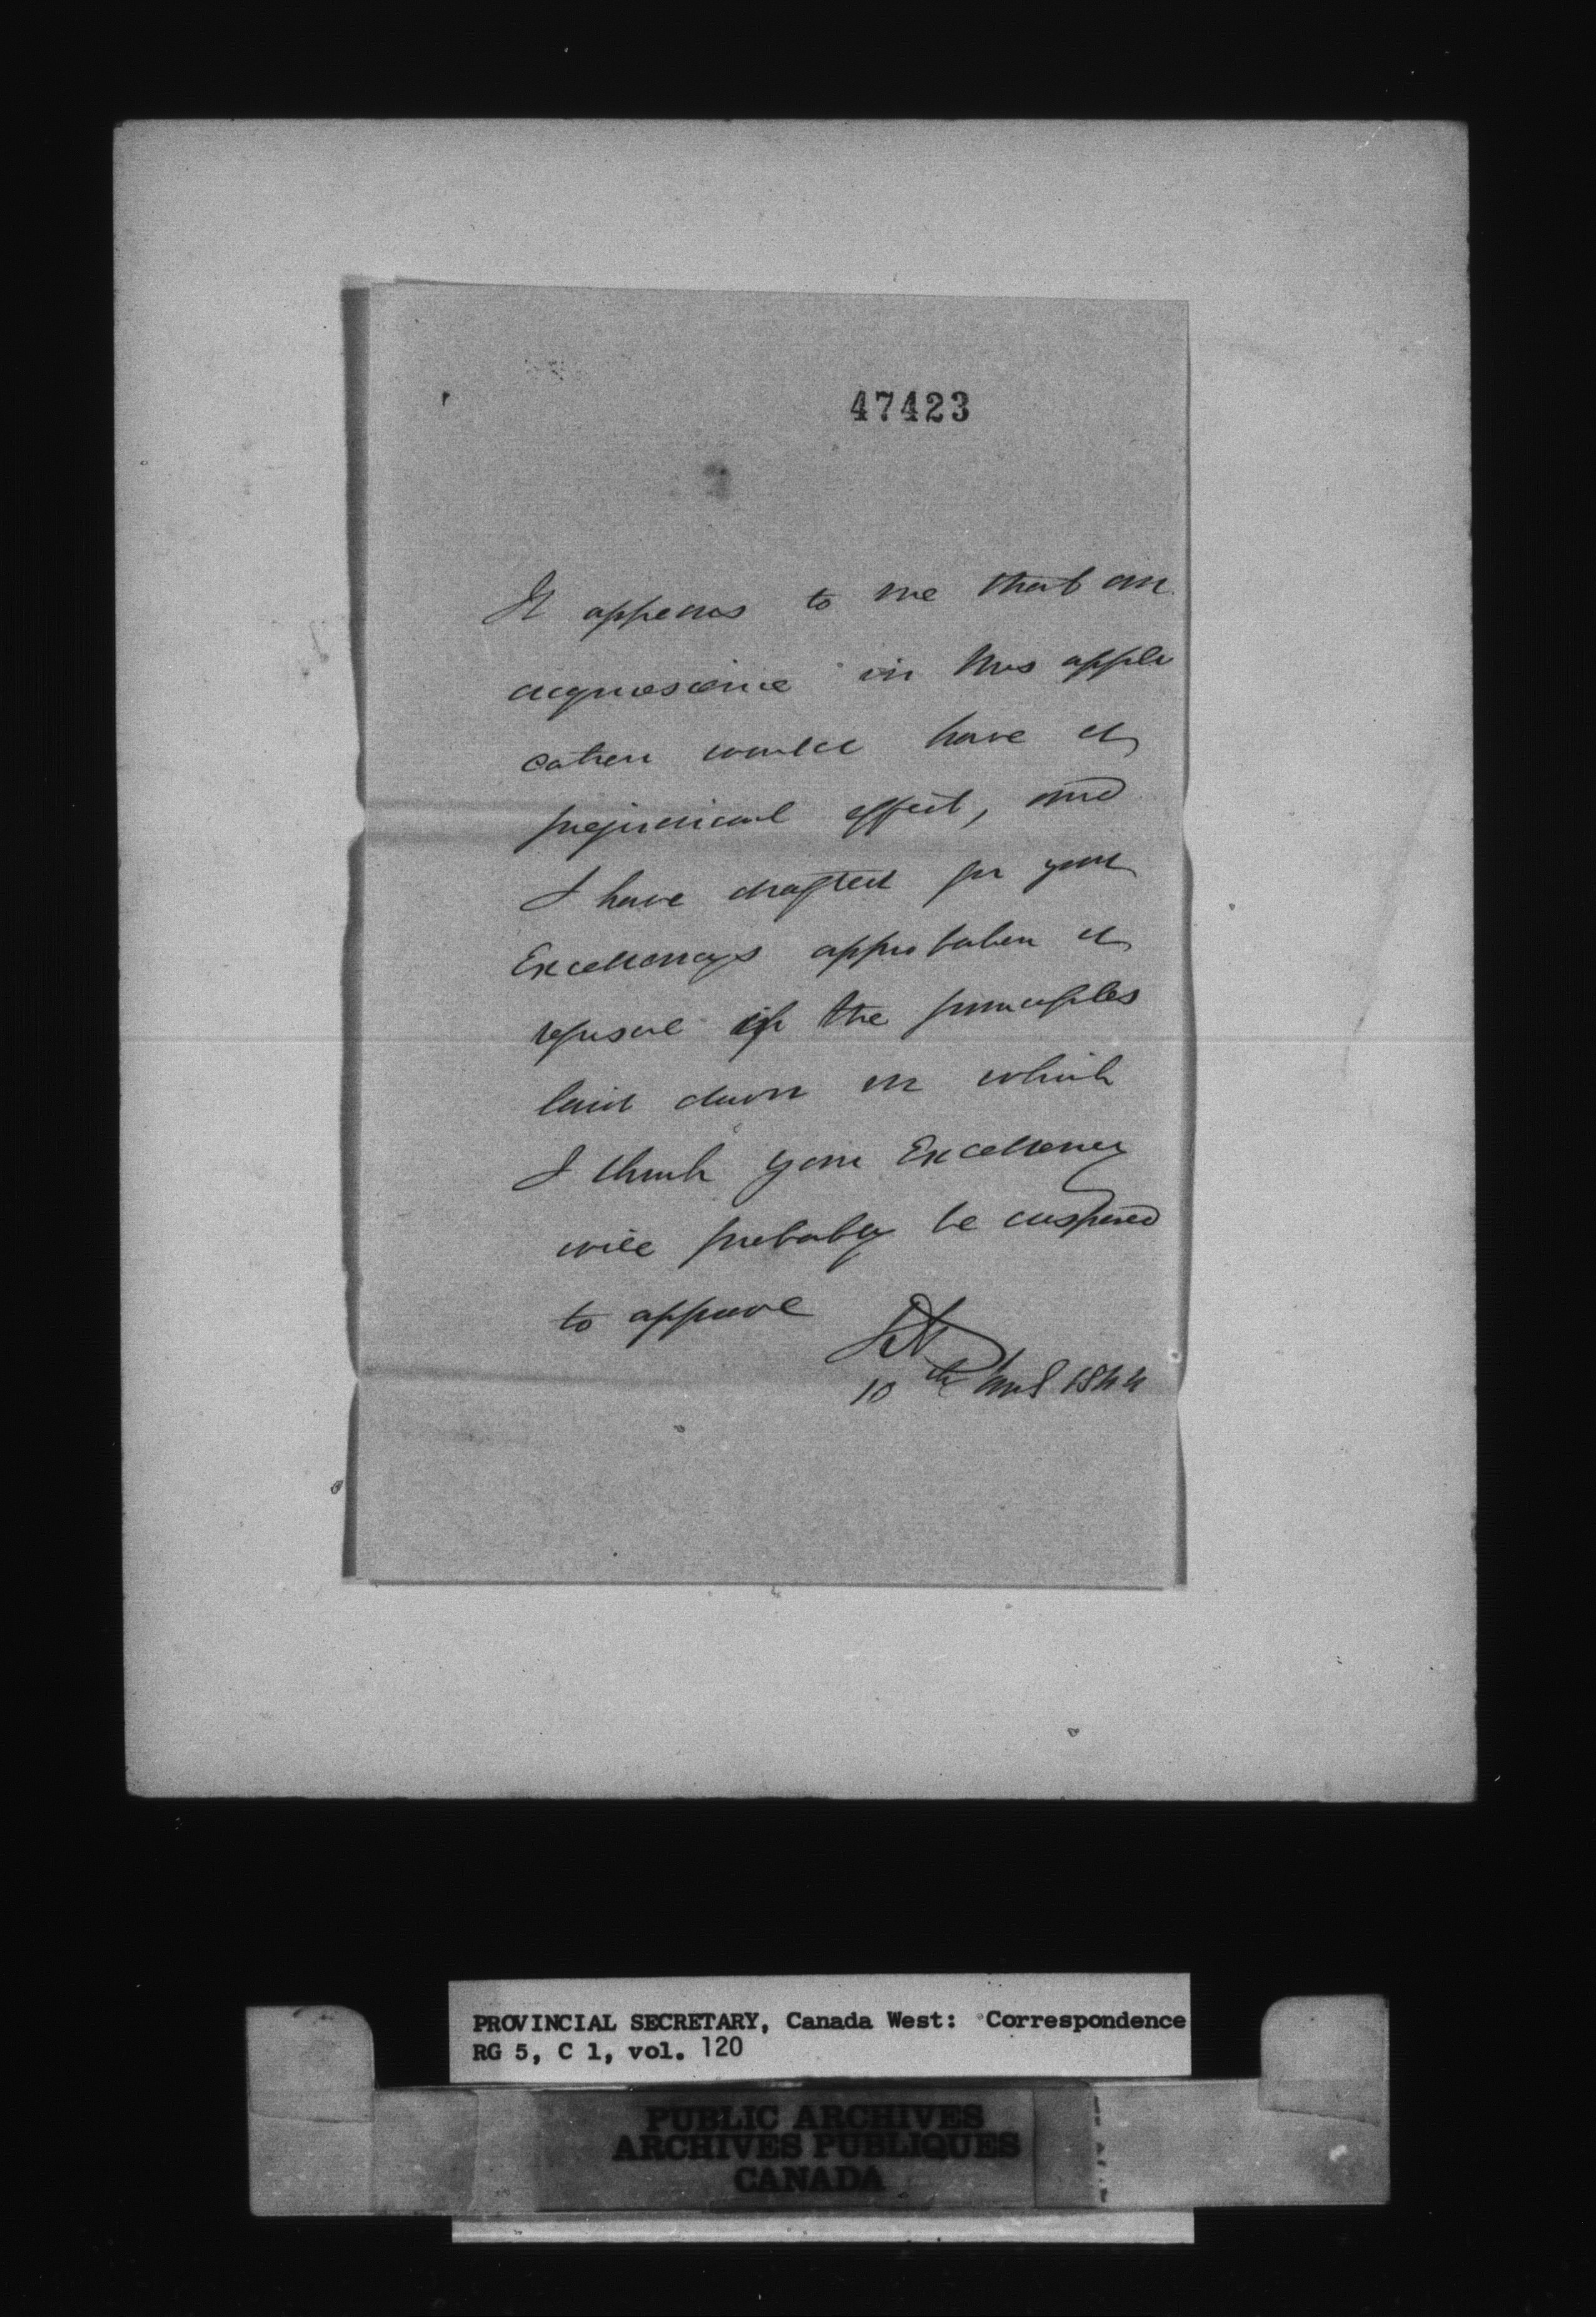 47423
It appears to me that an
acquiescence in this appli
cation would have a
prejudicial effect, and
I have drafted for your
Excellency's approbation a
refusal if the principles
laid down in which
I think your Excellency
will probably be disposed
to approve
10th April 1844
PROVINCIAL SECRETARY, Canada West: Correspondence
RG 5, C 1, vol. 120
PUBLIC ARCHIVES
ARCHIVES PUBLIQUES
CANADA